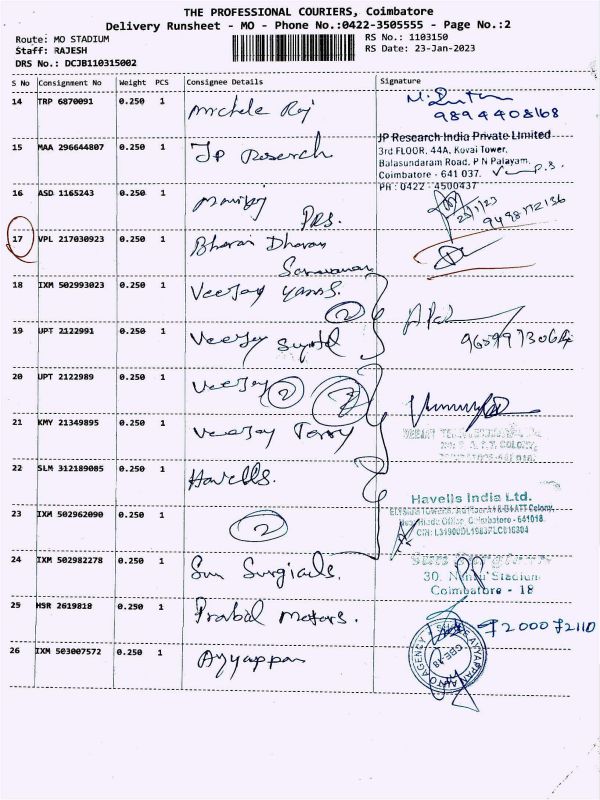 THE PROFESSIONAL COURIERS, Coimbatore
Delivery Runsheet - MO - Phone No.:0422-3505555 - Page No.:2
Route: MO STADIUM
RS No.: 1103150
Staff: RAJESH
RS Date: 23-Jan-2023
DRS No.: DCJB110315002
S No Consignment No Weight PCS Consignee Details Signature
14 TRP 6870091 0.250 1
9894408168
15 MAA 296644807 0.250 1 JP Reserch
JP Research India Private Limited
3rd FLOOR, 44A, Kovai Tower,
Balasundaram Road, P N Palayam,
Coimbatore - 641 037.
PH : 0422 - 4500437
16 ASD 1165243 0.250 1
23/1/23
17 VPL 217030923 0.250 1 Bharai Dharan
Saravanan
18 IXM 502993023 0.250 1 Veejay
2
19 UPT 2122991 0.250 1 Veejay
20 UPT 2122989 0.250 1 Veejay 2
2
21 KMY 21349895 0.250 1 Veejay Terry
22 SLM 312189005 0.250 1 Havells.
Havells India Ltd.
23 IXM 502962090 0.250 1 2
24 IXM 502982278 0.250 1 Sun Surgicals.
Sun Surgicals
30, Nehru Stadium
Coimbatore - 18
25 HSR 2619818 0.250 1 Prabal Motors.
26 IXM 503007572 0.250 1 Ayyappan